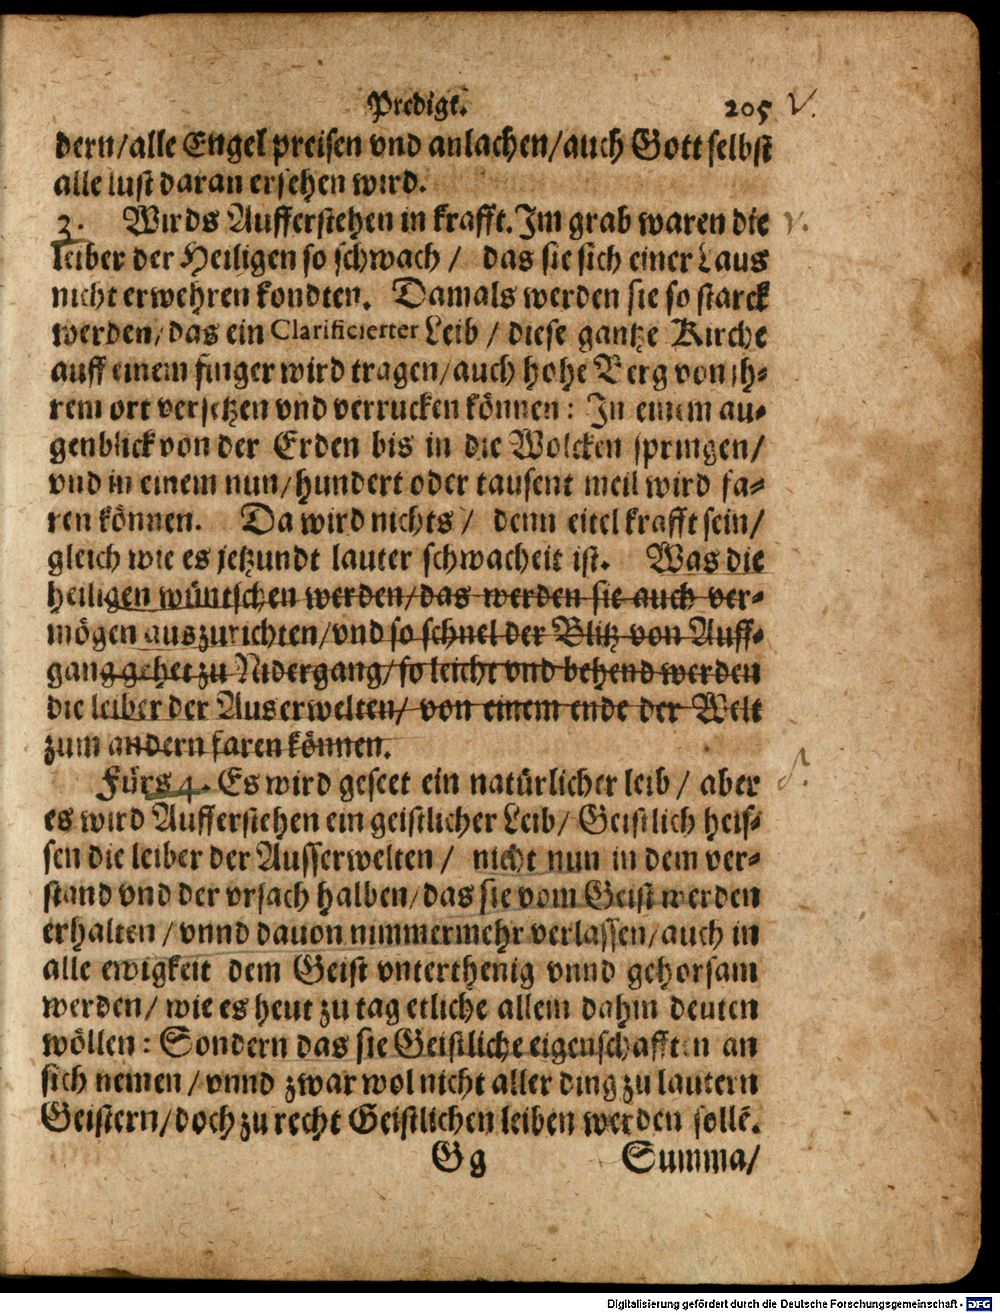 Predigt. 205 V.
dern/alle Engel preisen vnd anlachen/auch Gott selbst
alle lust daran ersehen wird.
3. Wirds Aufferstehen in krafft. Im grab waren die v.
leiber der Heiligen so schwach / das sie sich einer Laus
nicht erwehren kondten. Damals werden sie so starck
werden/das ein Clarificierter Leib / diese gantze Kirche
auff einem finger wird tragen/auch hohe Berg von jh-
rem ort versetzen vnd verrucken können: In einem au-
genblick von der Erden bis in die Wolcken springen/
vnd in einem nun/hundert oder tausent meil wird fa-
ren können. Da wird nichts / denn eitel krafft sein/
gleich wie es jetzundt lauter schwacheit ist. Was die
heiligen wüntschen werden/das werden sie auch ver-
mögen auszurichten/vnd so schnel der Blitz von Auff-
gang gehet zu Nidergang/so leicht vnd behend werden
die leiber der Auserwelten/ von einem ende der Welt
zum andern faren können.
Fürs 4. Es wird geseet ein natürlicher leib / aber
es wird Aufferstehen ein geistlicher Leib/ Geistlich heis-
sen die leiber der Ausserwelten / nicht nun in dem ver-
stand vnd der vrsach halben/das sie vom Geist werden
erhalten / vnnd dauon nimmermehr verlassen/auch in
alle ewigkeit dem Geist vnterthenig vnnd gehorsam
werden/ wie es heut zu tag etliche allein dahin deuten
wöllen: Sondern das sie Geistliche eigenschafften an
sich nemen / vnnd zwar wol nicht aller ding zu lautern
Geistern/doch zu recht Geistlichen leiben werden sollē.
Gg Summa/
Digitalisierung gefördert durch die Deutsche Forschungsgemeinschaft - DFG